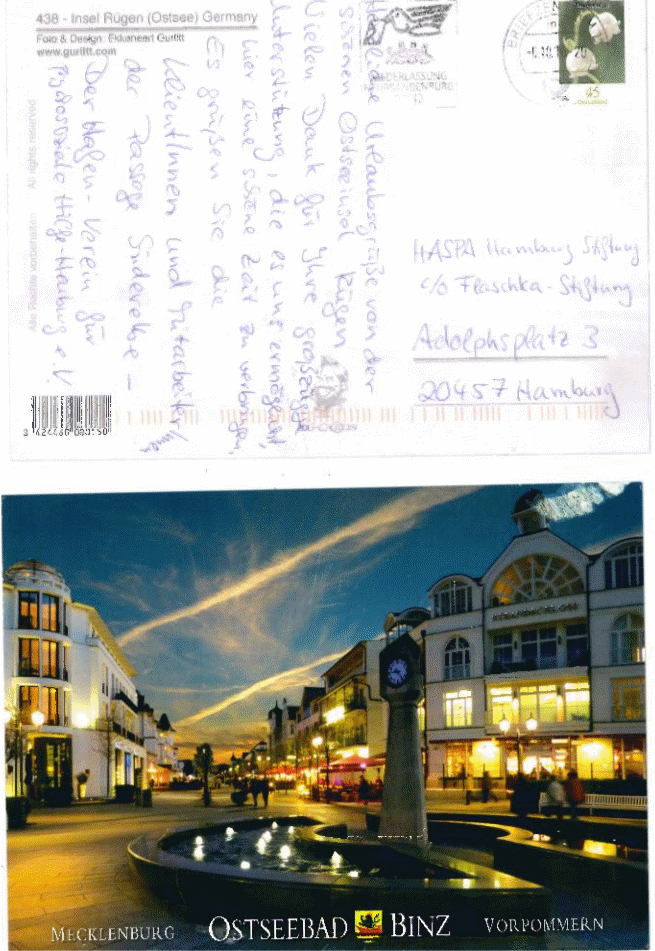 438 - Insel Rügen (Ostsee) Germany
Foto & Design: Ekkeheart Gurlitt
www.gurlitt.com
Alle Rechte vorbehalten All rights reserved
Herzliche Urlaubsgrüße von der
schönen Ostseeinsel Rügen
Vielen Dank für Ihre großzügige
Unterstützung, die es uns ermöglicht,
hier eine schöne Zeit zu verbringen,
Es grüßen Sie die
KlientInnen und Mitarbeiter/innen
der Passage Süderelbe -
Der Hafen - Verein für
Psychosoziale Hilfe Harburg e.V.
BRIEFZEN
45
Deutschland
HASPA Hamburg Stiftung
c/o Flaschka-Stiftung
Adolphsplatz 3
20457 Hamburg
MECKLENBURG OSTSEEBAD BINZ VORPOMMERN